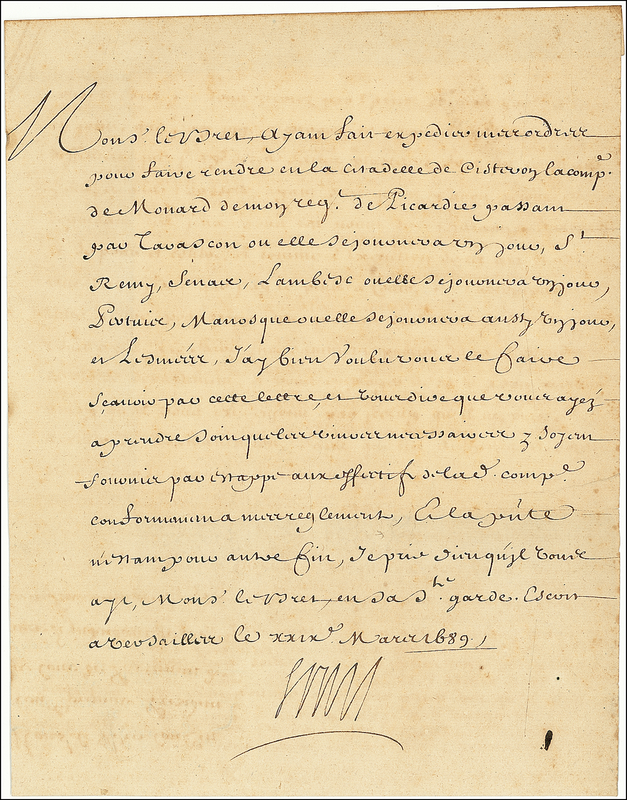 Mons.r lebret, Ayant fait expedier mes ordres
pour faire rendre en la citadelle de Cisteron la comp.e
de Mouard de mon reg.t de Picardie passant
par Tarascon ou elle sejournera un jour, S.t
Remy, Senas, Lambesc ou elle sejournera un jour,
Pertuis, Manosque ou elle sejournera aussy un jour,
et Lesmées, J'ay bien voulu vous le faire
sçavoir par cette lettre, et vous dire que vous ayez
a prendre soin que les vivres necessaires y soyent
fournis par estappe aux effectifs de lad.e comp.e
conformement a mes reglement, Et la p'nte
n'estant pour autre fin, Je prie Dieu qu'il vous
ayt, Mons.r lebret, en sa S.te garde. Escrit
a versailles le xxix.e Mars 1689,
Louis